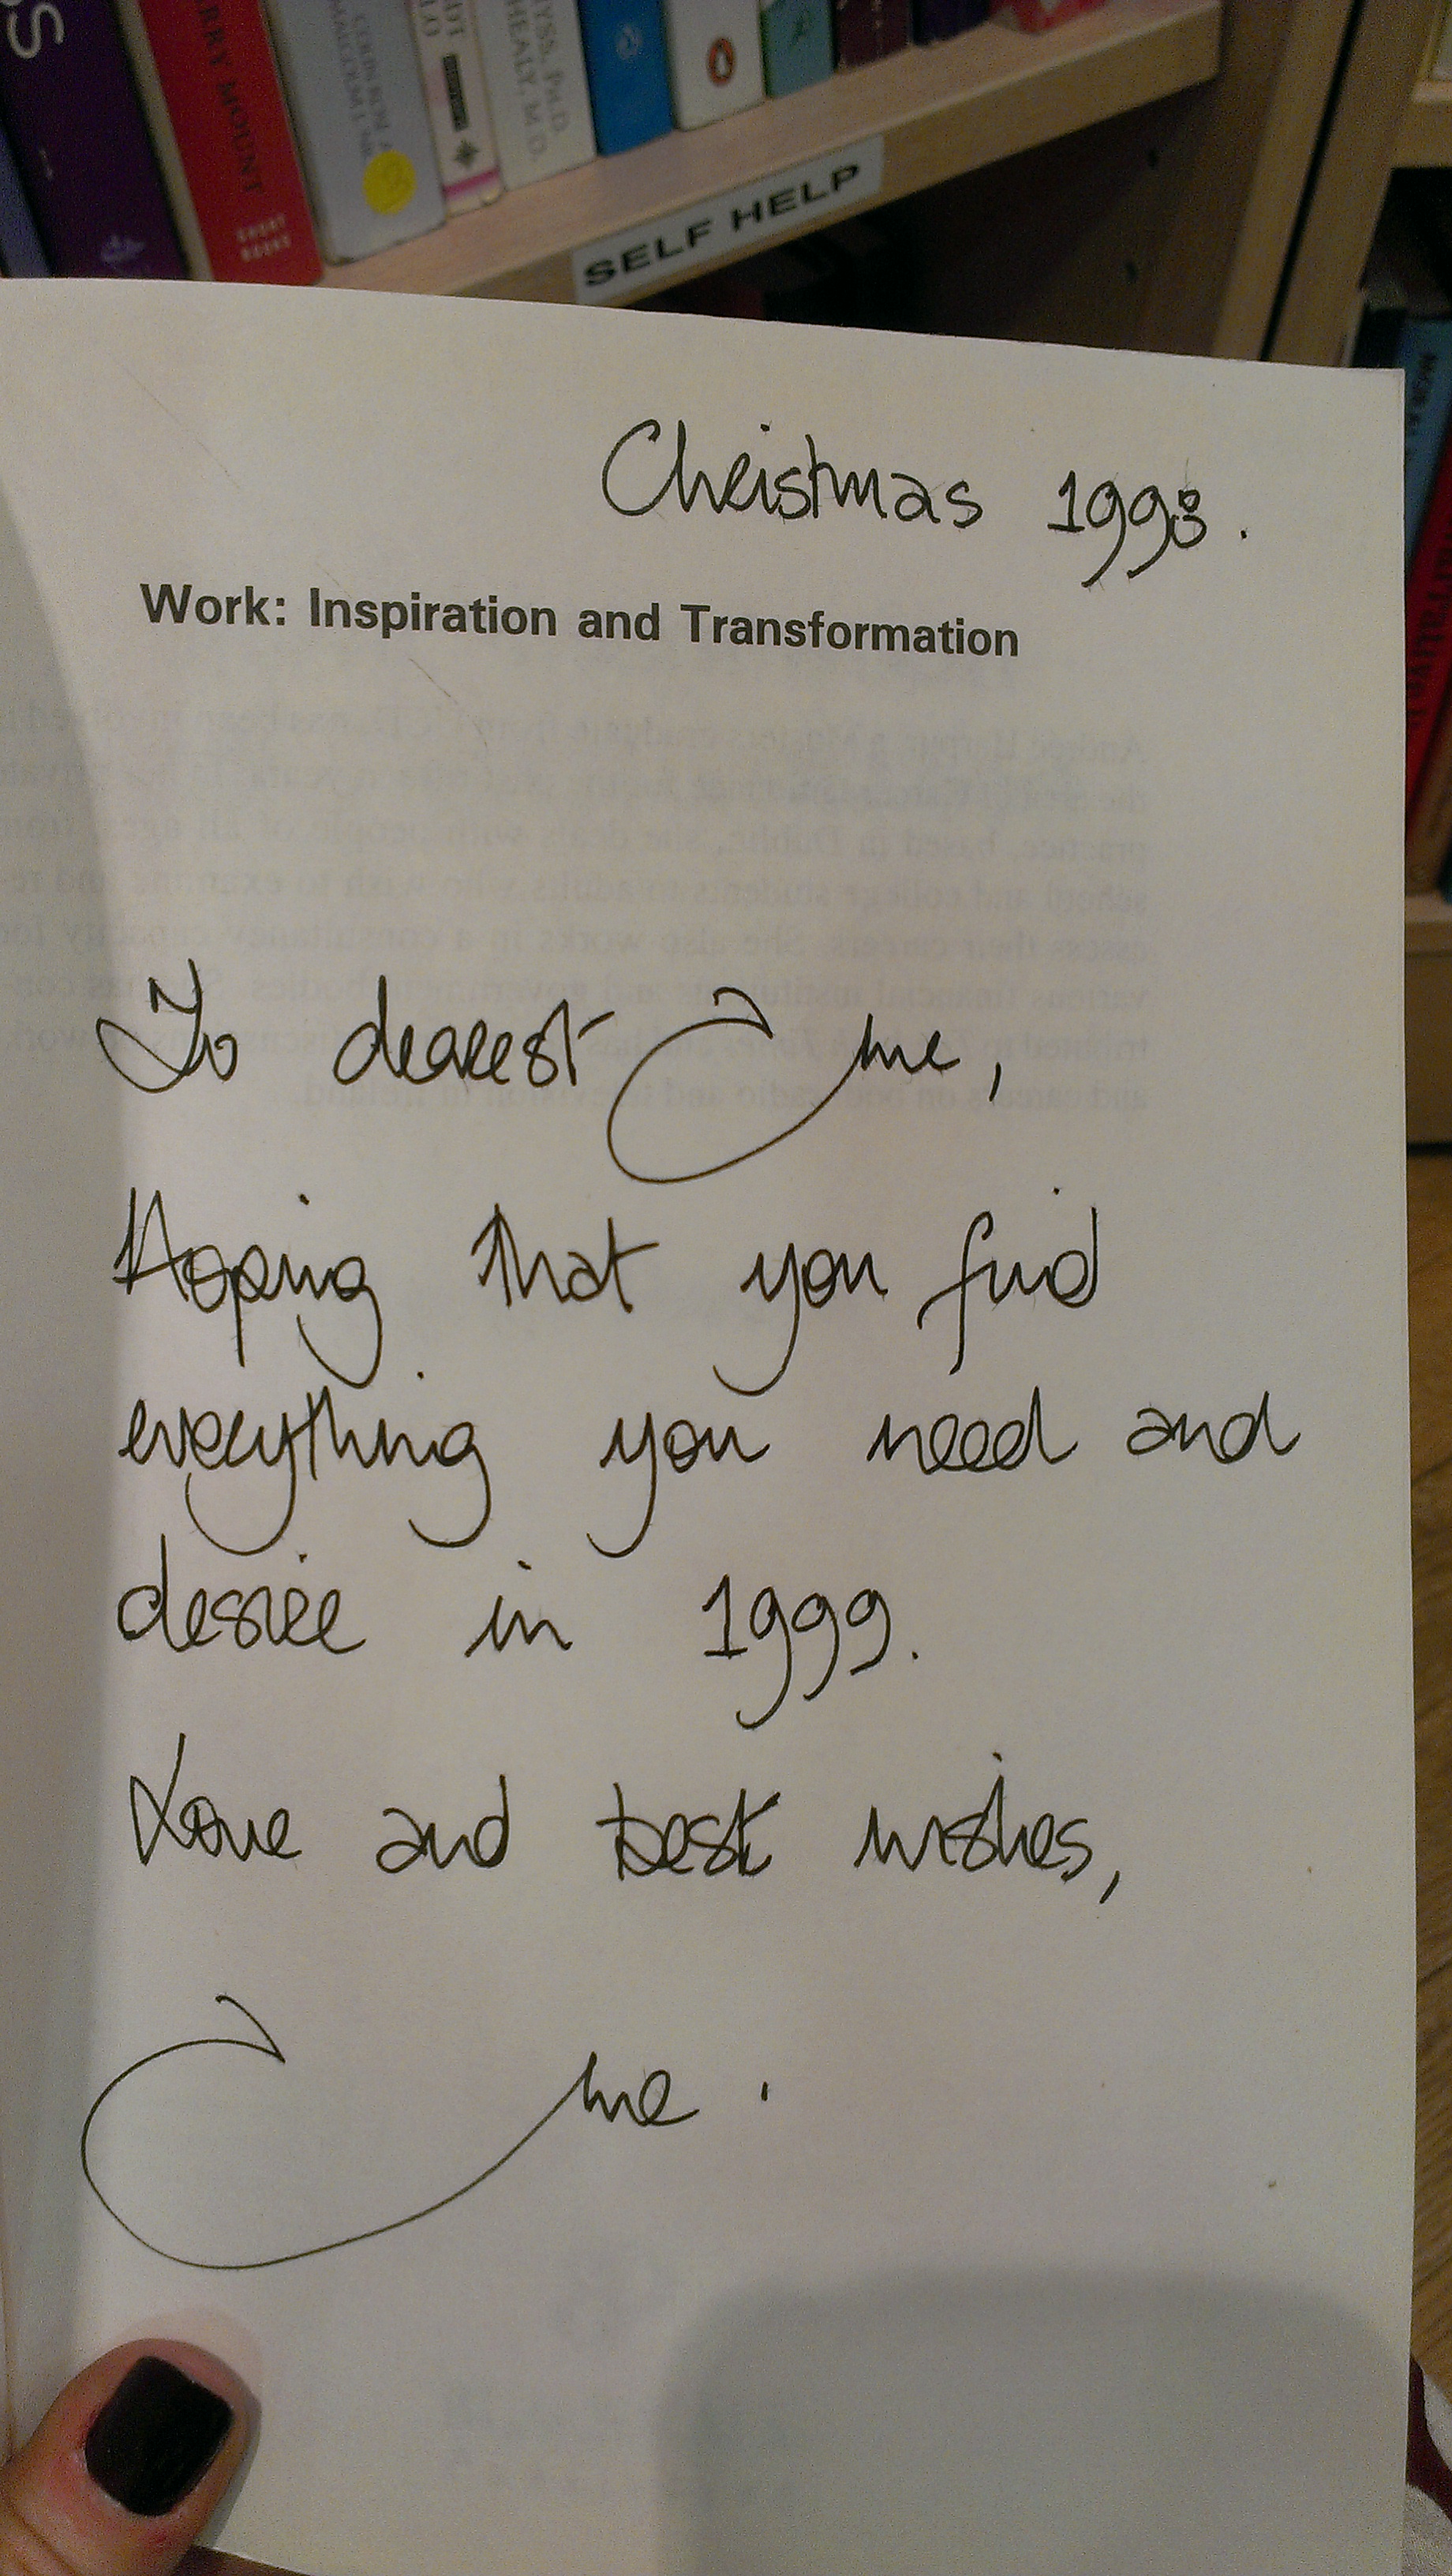 RRY MOUNT
SHORT BOOKS
YSS, PH.D.
HEALY, M.D.
SELF HELP
Christmas 1998.
Work: Inspiration and Transformation
To dearest me,
Hoping that you find
everything you need and
desire in 1999.
Love and best wishes,
me.